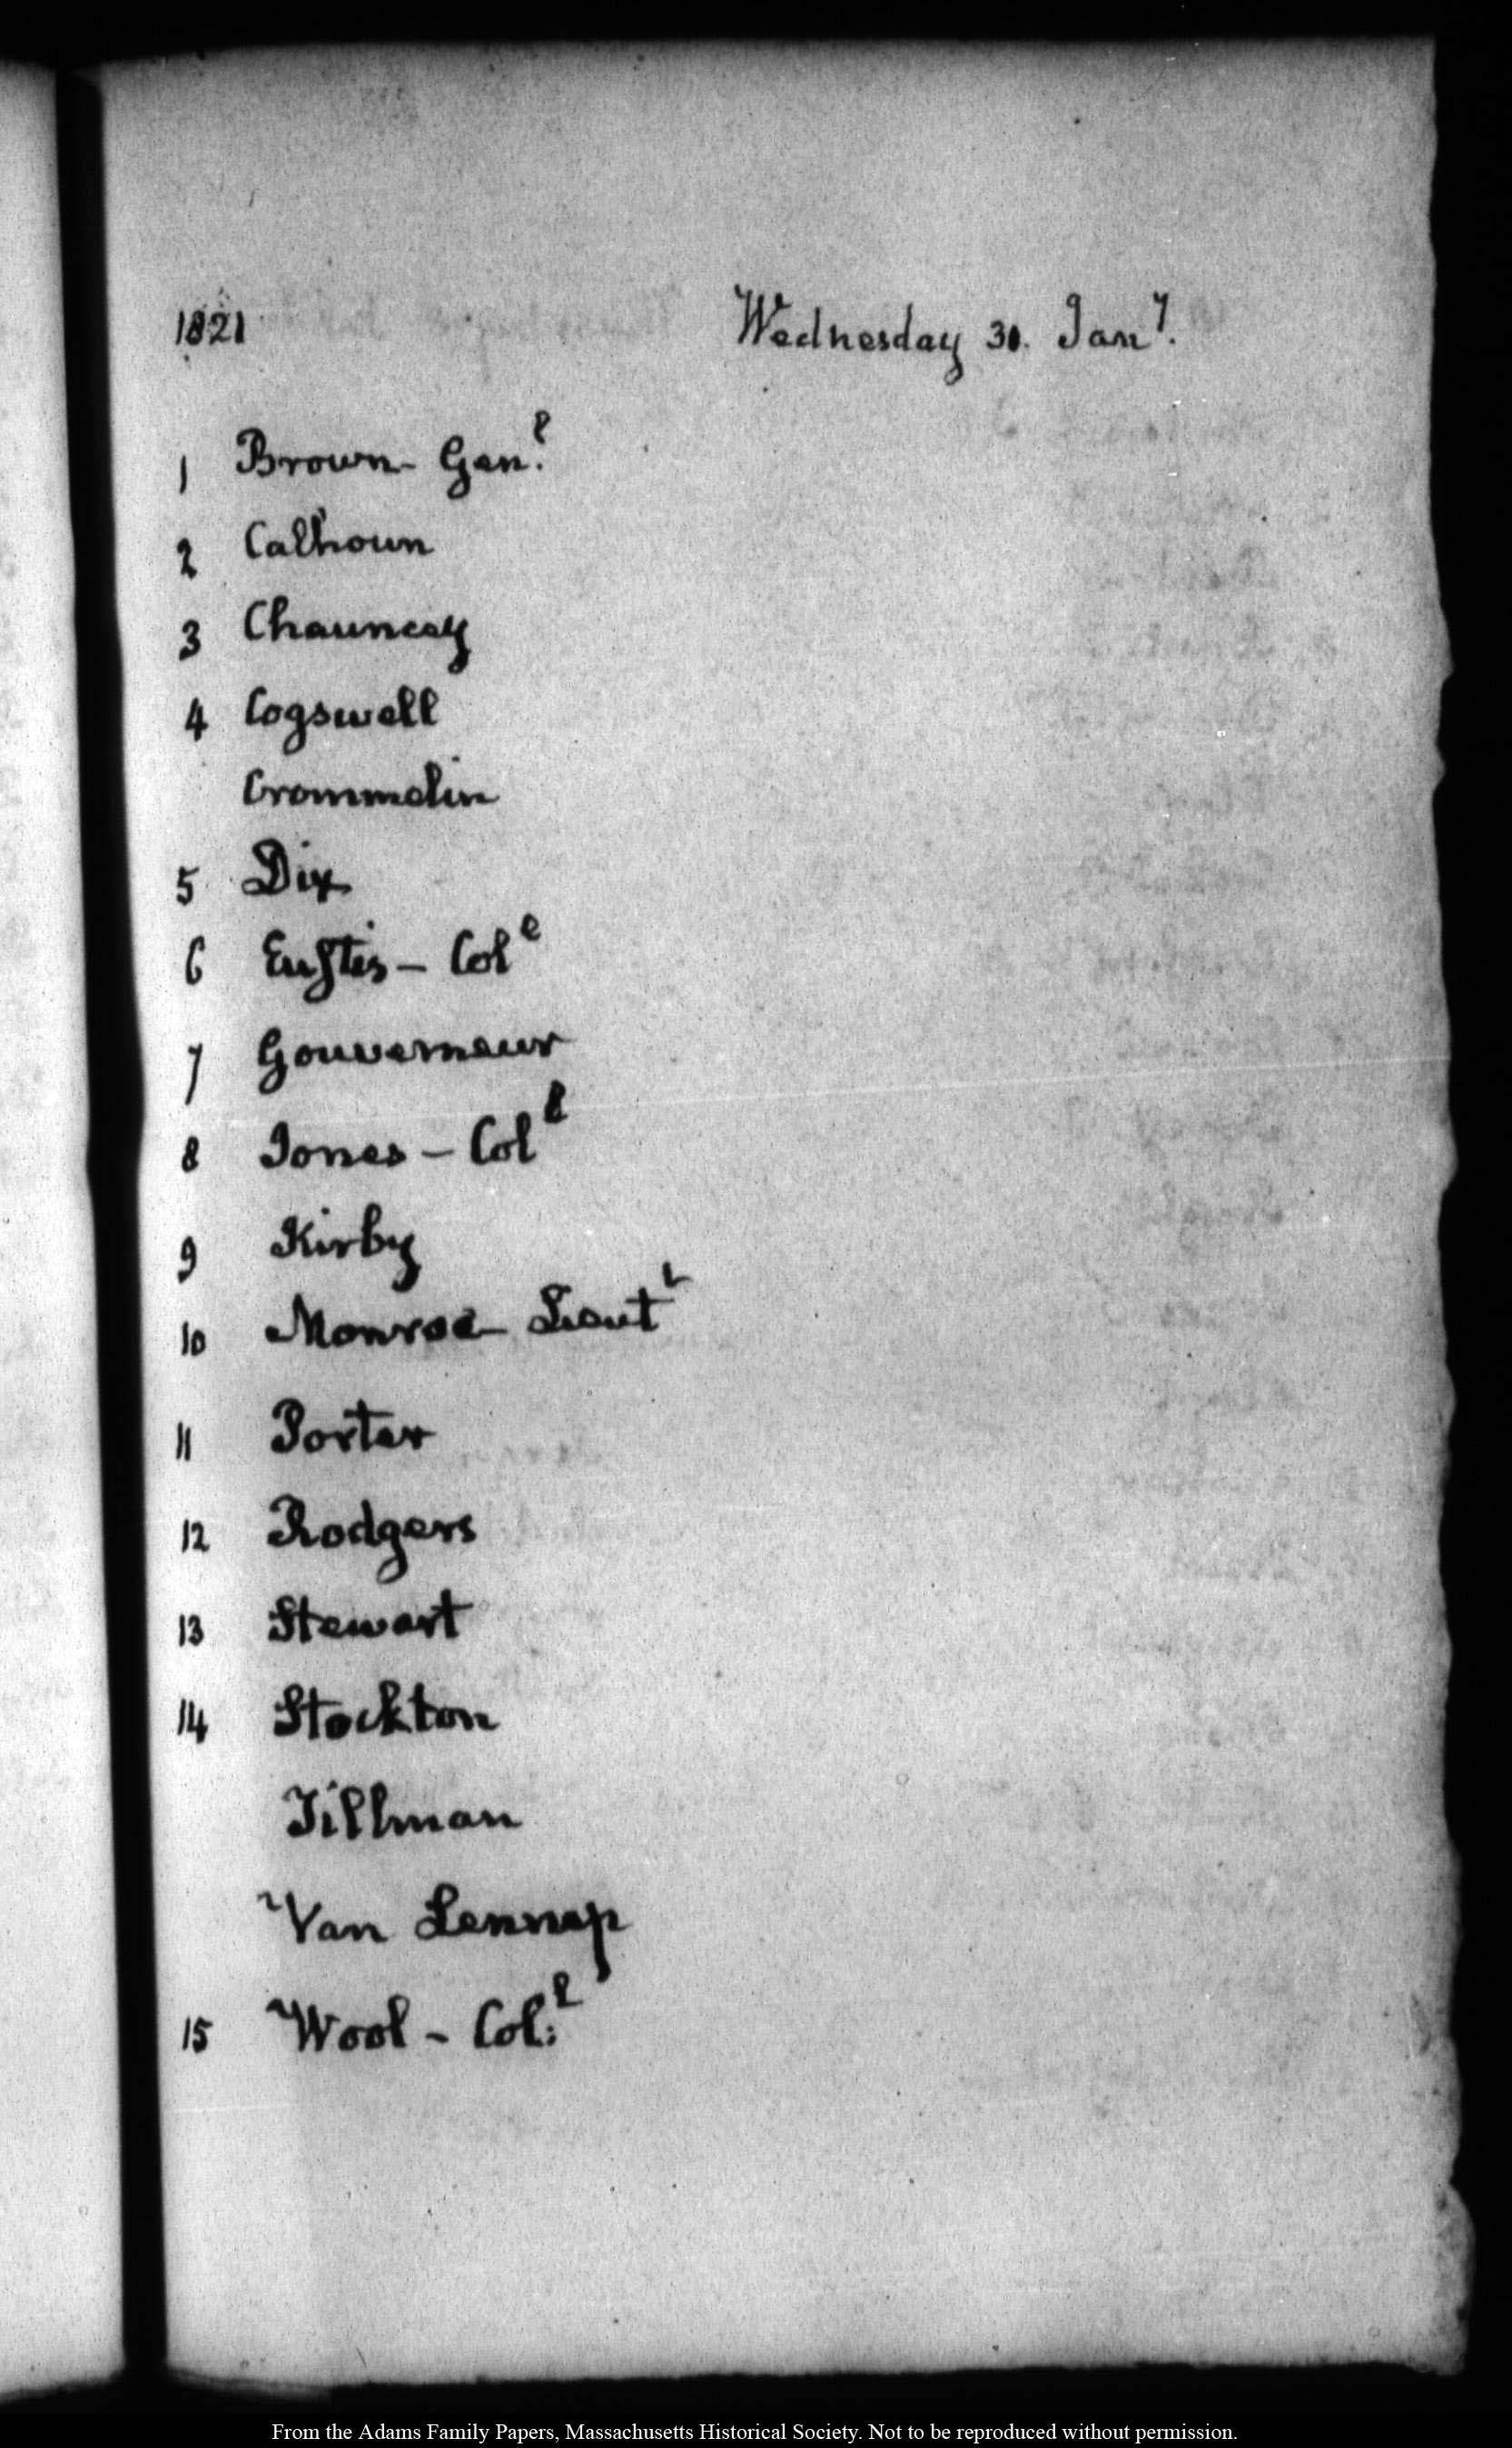 1821 Wednesday 30. Jany.
1 Brown- Genl.
2 Calhoun
3 Chauncey
4 Cogswell
Crommelin
5 Dix
6 Euſtis - Coll
7 Gouverneur
8 Jones - Coll
9 Kirby
10 Monroe- Lieutt
11 Porter
12 Rodgers
13 Stewart
14 Stockton
Tillman
Van Lennep
15 Wool - Col:l
From the Adams Family Papers, Massachusetts Historical Society. Not to be reproduced without permission.